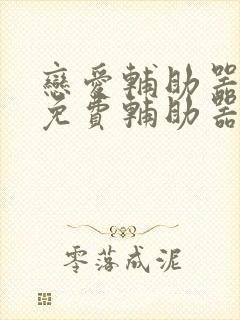 戀愛輔助器
免費輔助器
零落成泥